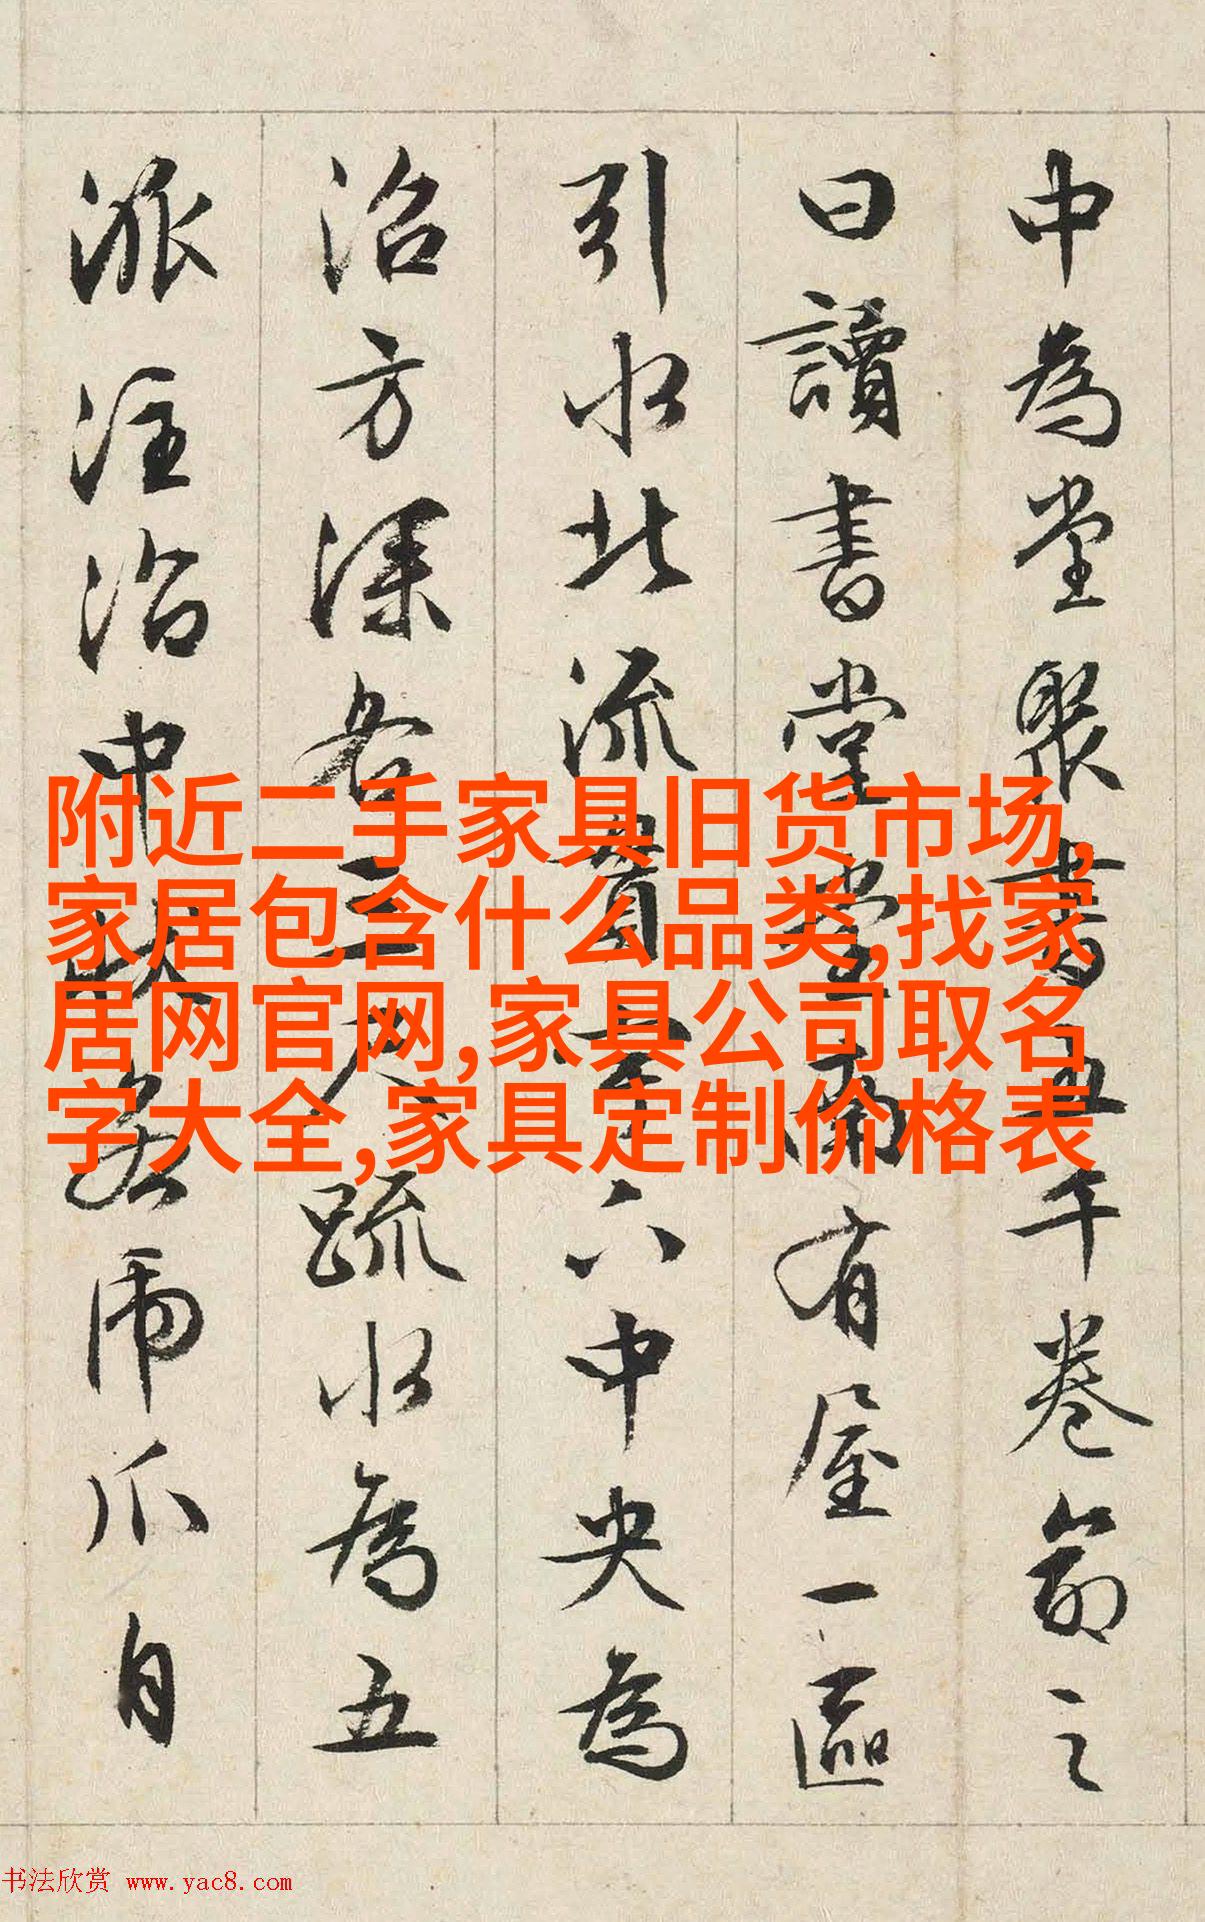 中為堂聚書五千卷命之
曰讀書堂堂南有屋一區
引水北流貫宇下中央為
沼方深各三尺疏水為五
派注沼中狀若虎爪自
附近二手家具旧货市场,
家居包含什么品类,找家
居网官网,家具公司取名
字大全,家具定制价格表
书法欣赏 www.yac8.com